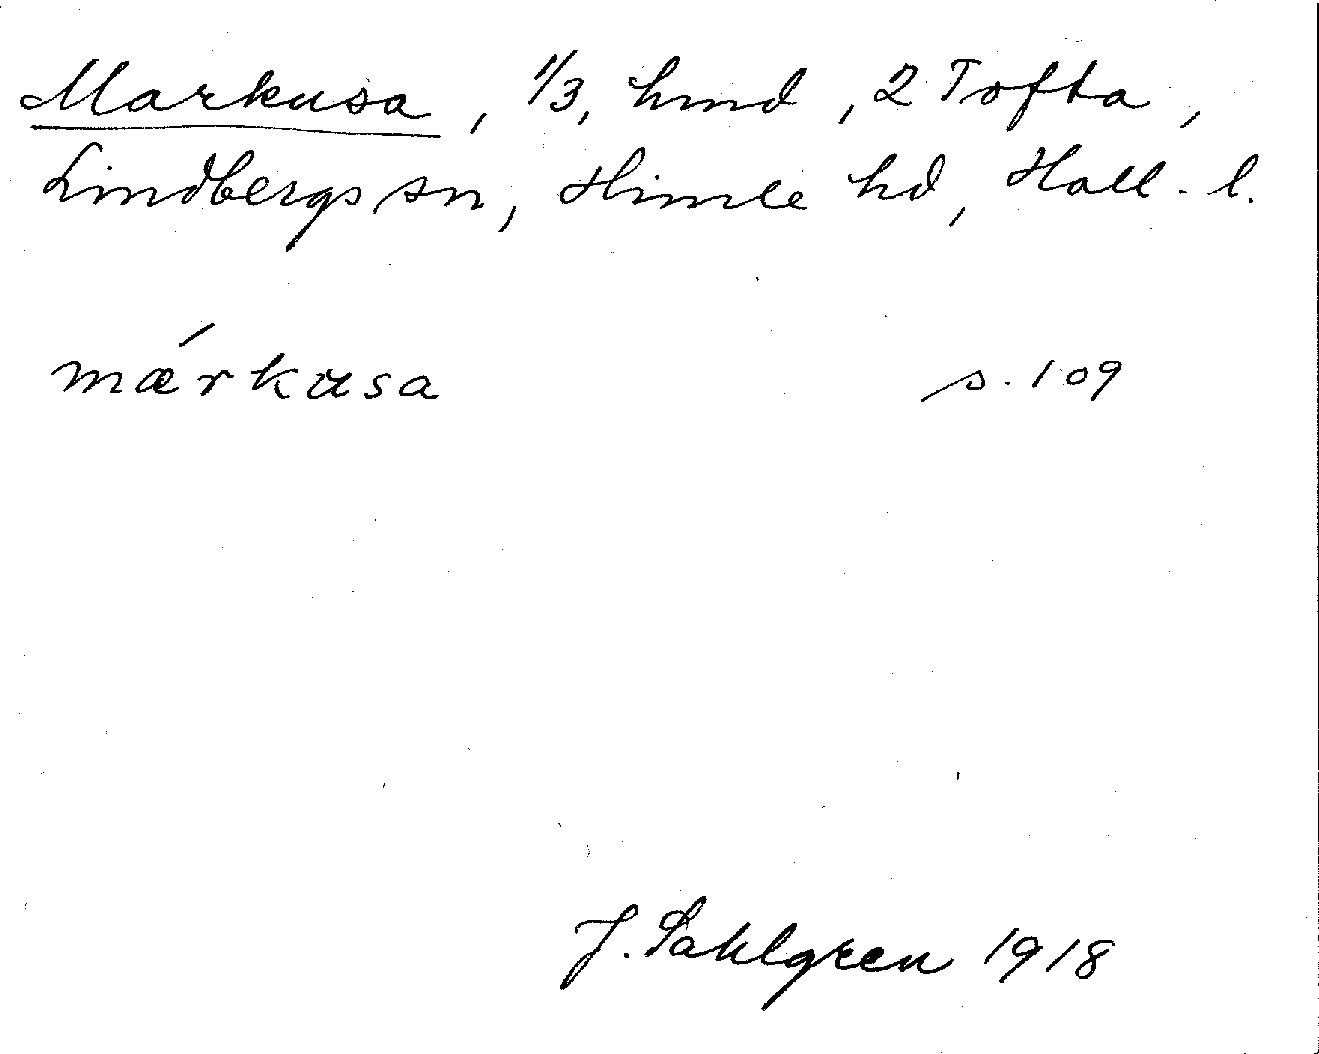 Markusa, 1/3, hmd, 2 Tofta,
Lindbergs sn, Himle hd, Hall. l.
márkusa s. 109
J. Sahlgren 1918